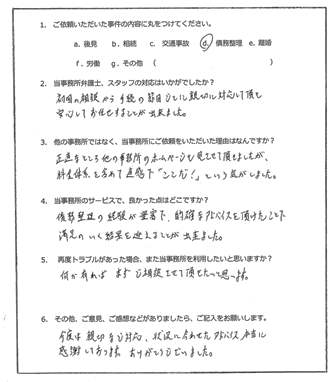 1. ご依頼いただいた事件の内容に丸をつけてください。
a. 後見 b. 相続 c. 交通事故 d. 債務整理 e. 離婚
f. 労働 g. その他 ( )
2. 当事務所弁護士、スタッフの対応はいかがでしたか?
初回の相談から手続の節目ごとに親切に対応して頂き
安心してお任せすることが出来ました。
3. 他の事務所ではなく、当事務所にご依頼をいただいた理由はなんですか?
正直なところ他の事務所のホームページも見させて頂きましたが、
料金体系も含めて直感で"ここだ!"という気がしました。
4. 当事務所のサービスで、良かった点はどこですか?
債務整理の経験が豊富で、的確なアドバイスを頂けたことで
満足のいく結果を迎えることが出来ました。
5. 再度トラブルがあった場合、また当事務所を利用したいと思いますか?
何か有れば まずご相談させて頂きたいと思います。
6. その他、ご意見、ご感想などがありましたら、ご記入をお願いします。
今度は親切なご対応、状況に合わせたアドバイス 本当に
感謝しております。ありがとうございました。